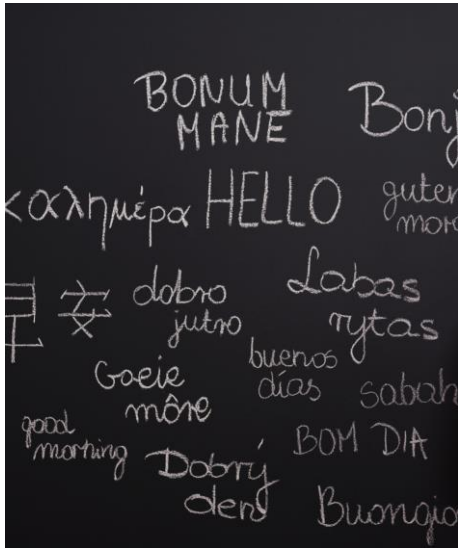 BONUM
MANE
Bonj
καλημέρα
HELLO
guten
morg
dobro
jutro
Labas
rytas
Goeie
môre
buenos
días
sabah
good
morning
BOM DIA
Dobrý
den
Buongio